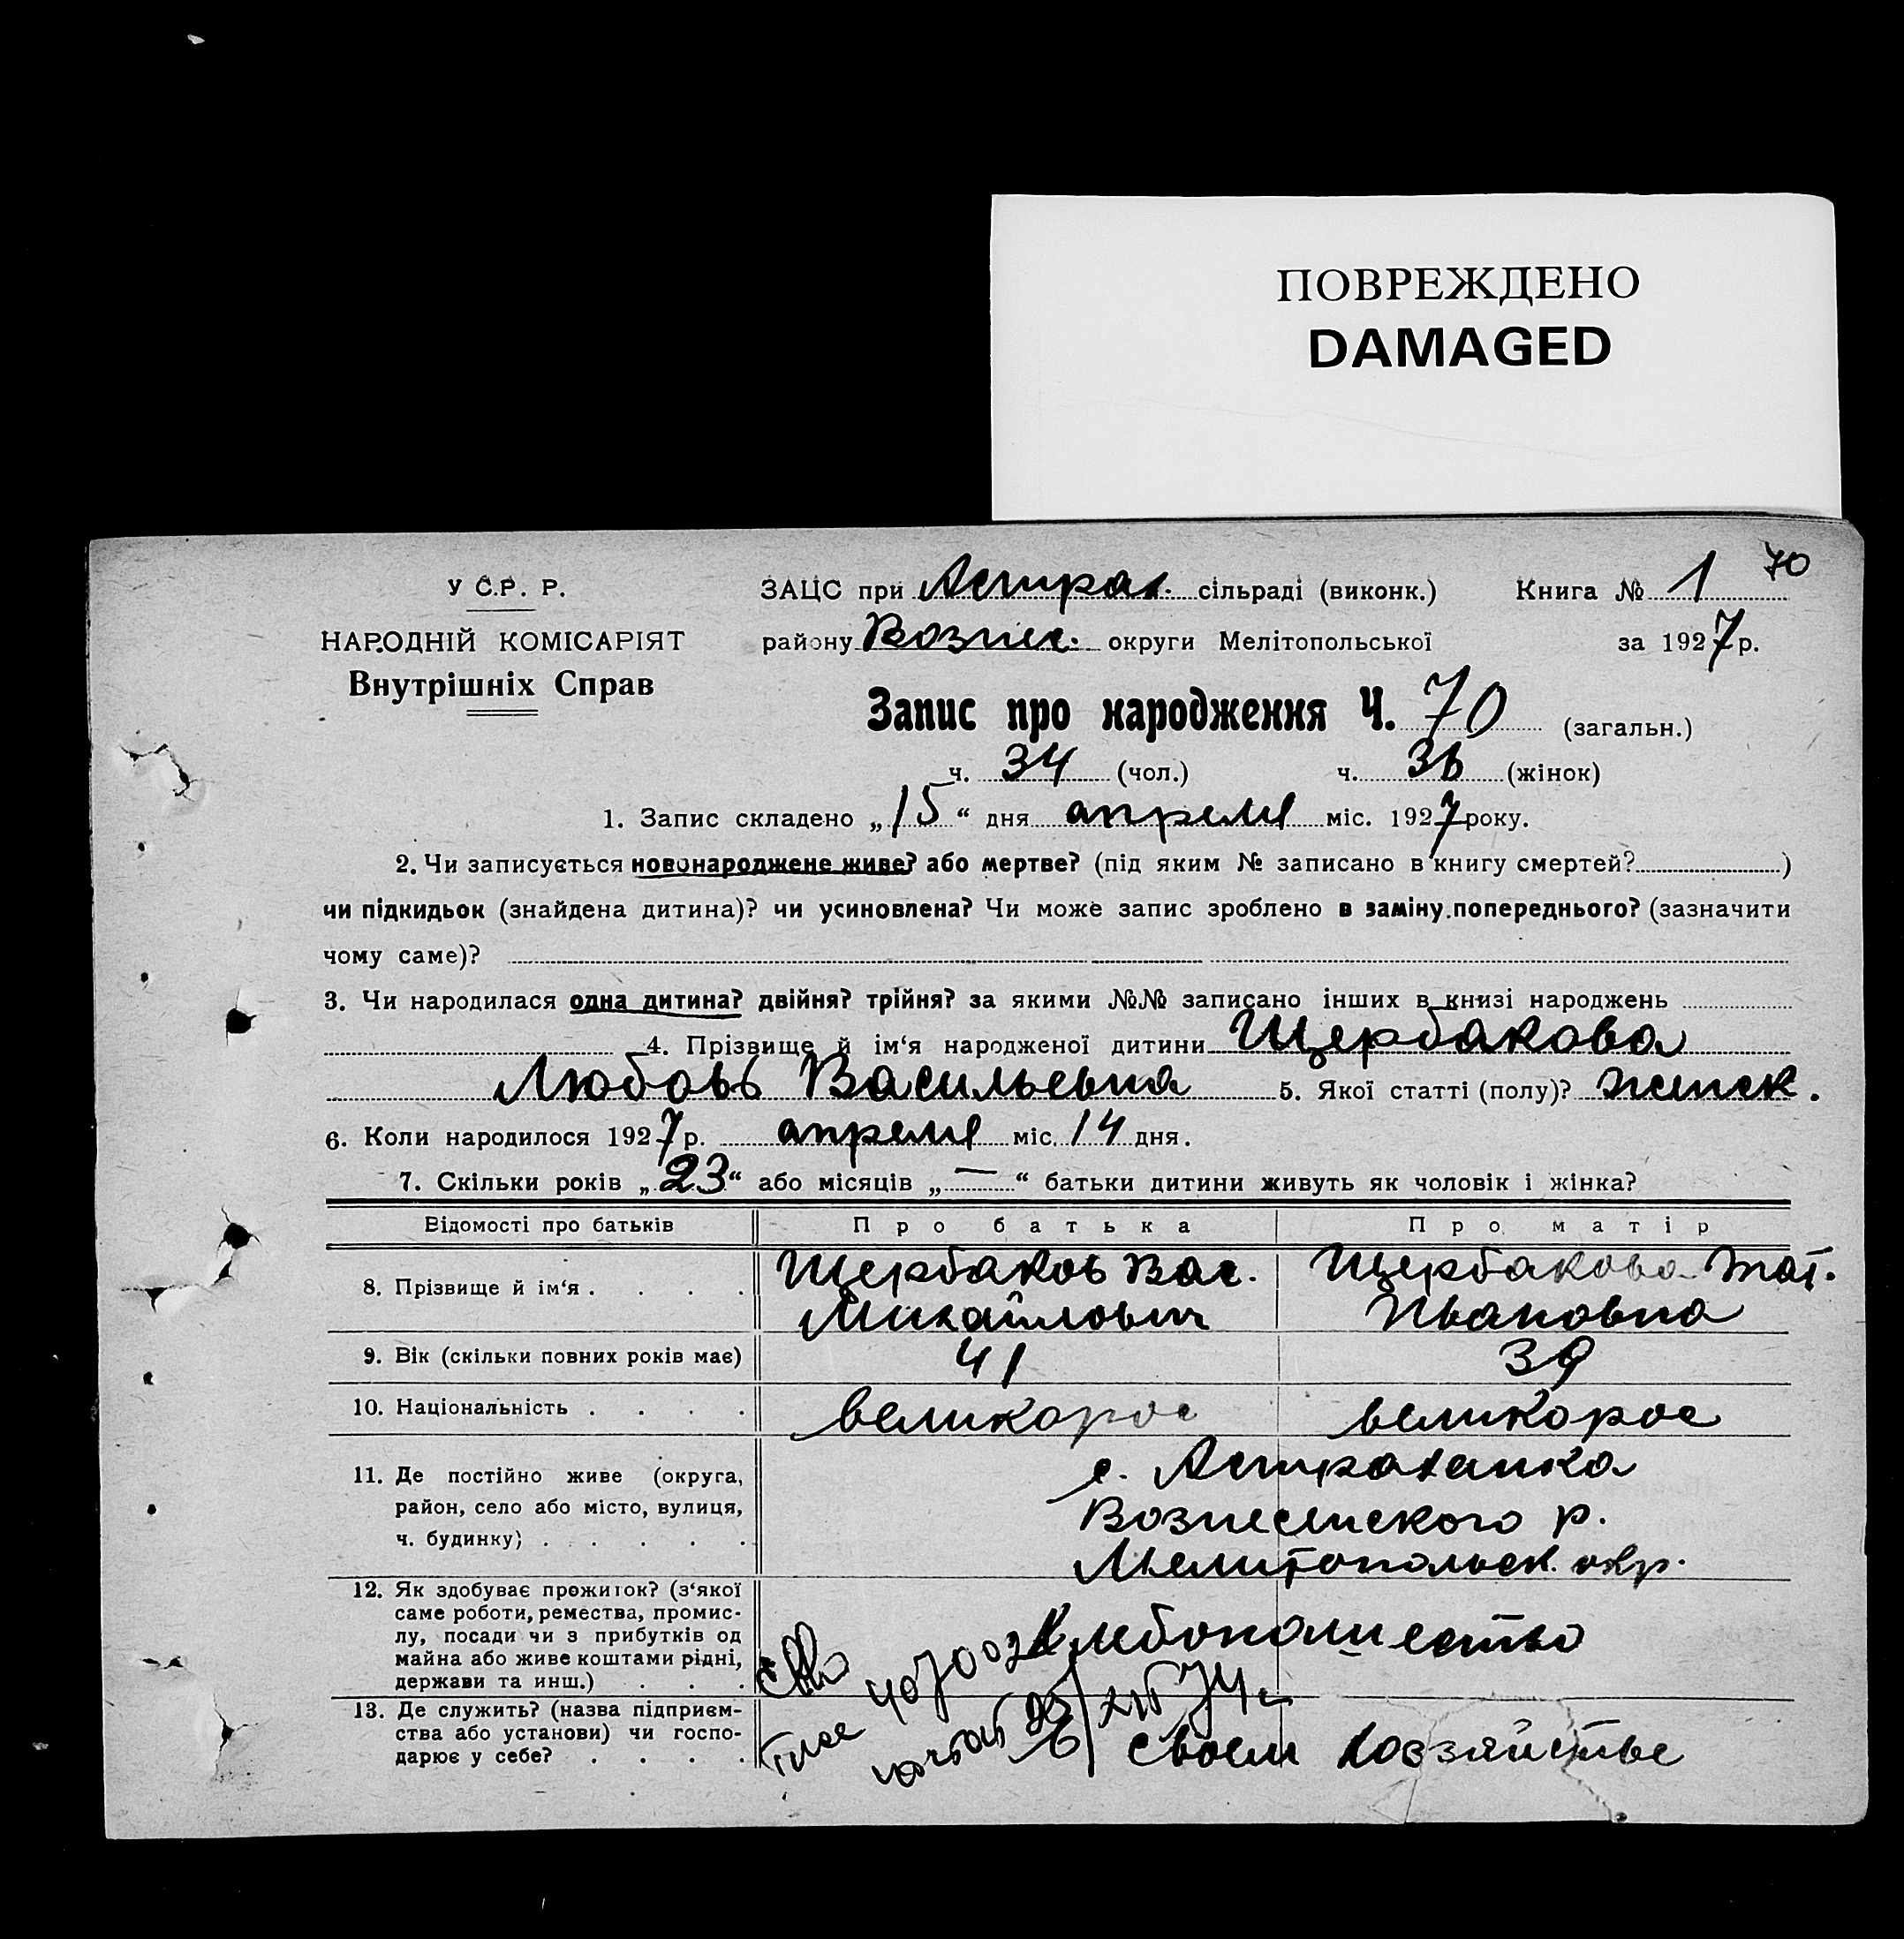 ПОВРЕЖДЕНО
DAMAGED
70
У С.Р. Р.
ЗАЦС при Астрах. сільраді (виконк.) Книга № 1
НАРОДНІЙ КОМІСАРІЯТ
району Вознес. округи Мелітопольської за 1927 р.
Внутрішніх Справ
Запис про народження Ч. 70 (загальн.)
ч. 34 (чол.) ч. 36 (жінок)
1. Запис складено „15“ дня апреля міс. 1927 року.
2. Чи записується новонароджене живе? або мертве? (під яким № записано в книгу смертей? )
чи підкидьок (знайдена дитина)? чи усиновлена? Чи може запис зроблено в заміну попереднього? (зазначити
чому саме)?
3. Чи народилася одна дитина? двійня? трійня? за якими №№ записано інших в книзі народжень
4. Прізвище й ім‘я народженої дитини Щербакова
Любовь Васильевна 5. Якої статті (полу)? женск.
6. Коли народилося 1927 р. апреля міс. 14 дня.
7. Скільки років „23“ або місяців „—“ батьки дитини живуть як чоловік і жінка?
Відомості про батьків Про батька Про матір
8. Прізвище й ім‘я . . . . Щербаков Вас. Щербакова Тат.
Михайлович Ивановна
9. Вік (скільки повних років має) 41 39
10. Національність . . . . великорос великорос
11. Де постійно живе (округа, с. Астраханка
район, село або місто, вулиця, Вознесенского р.
ч. будинку) . . . . . Мелитопольск. окр.
12. Як здобуває прожиток? (з‘якої
саме роботи, ремества, промис-
лу, посади чи з прибутків од хлебопашество
майна або живе коштами рідні,
держави та инш.) . . .
13. Де служить? (назва підприєм-
ства або установи) чи госпо- своем хозяйстве
дарює у себе? . . . .